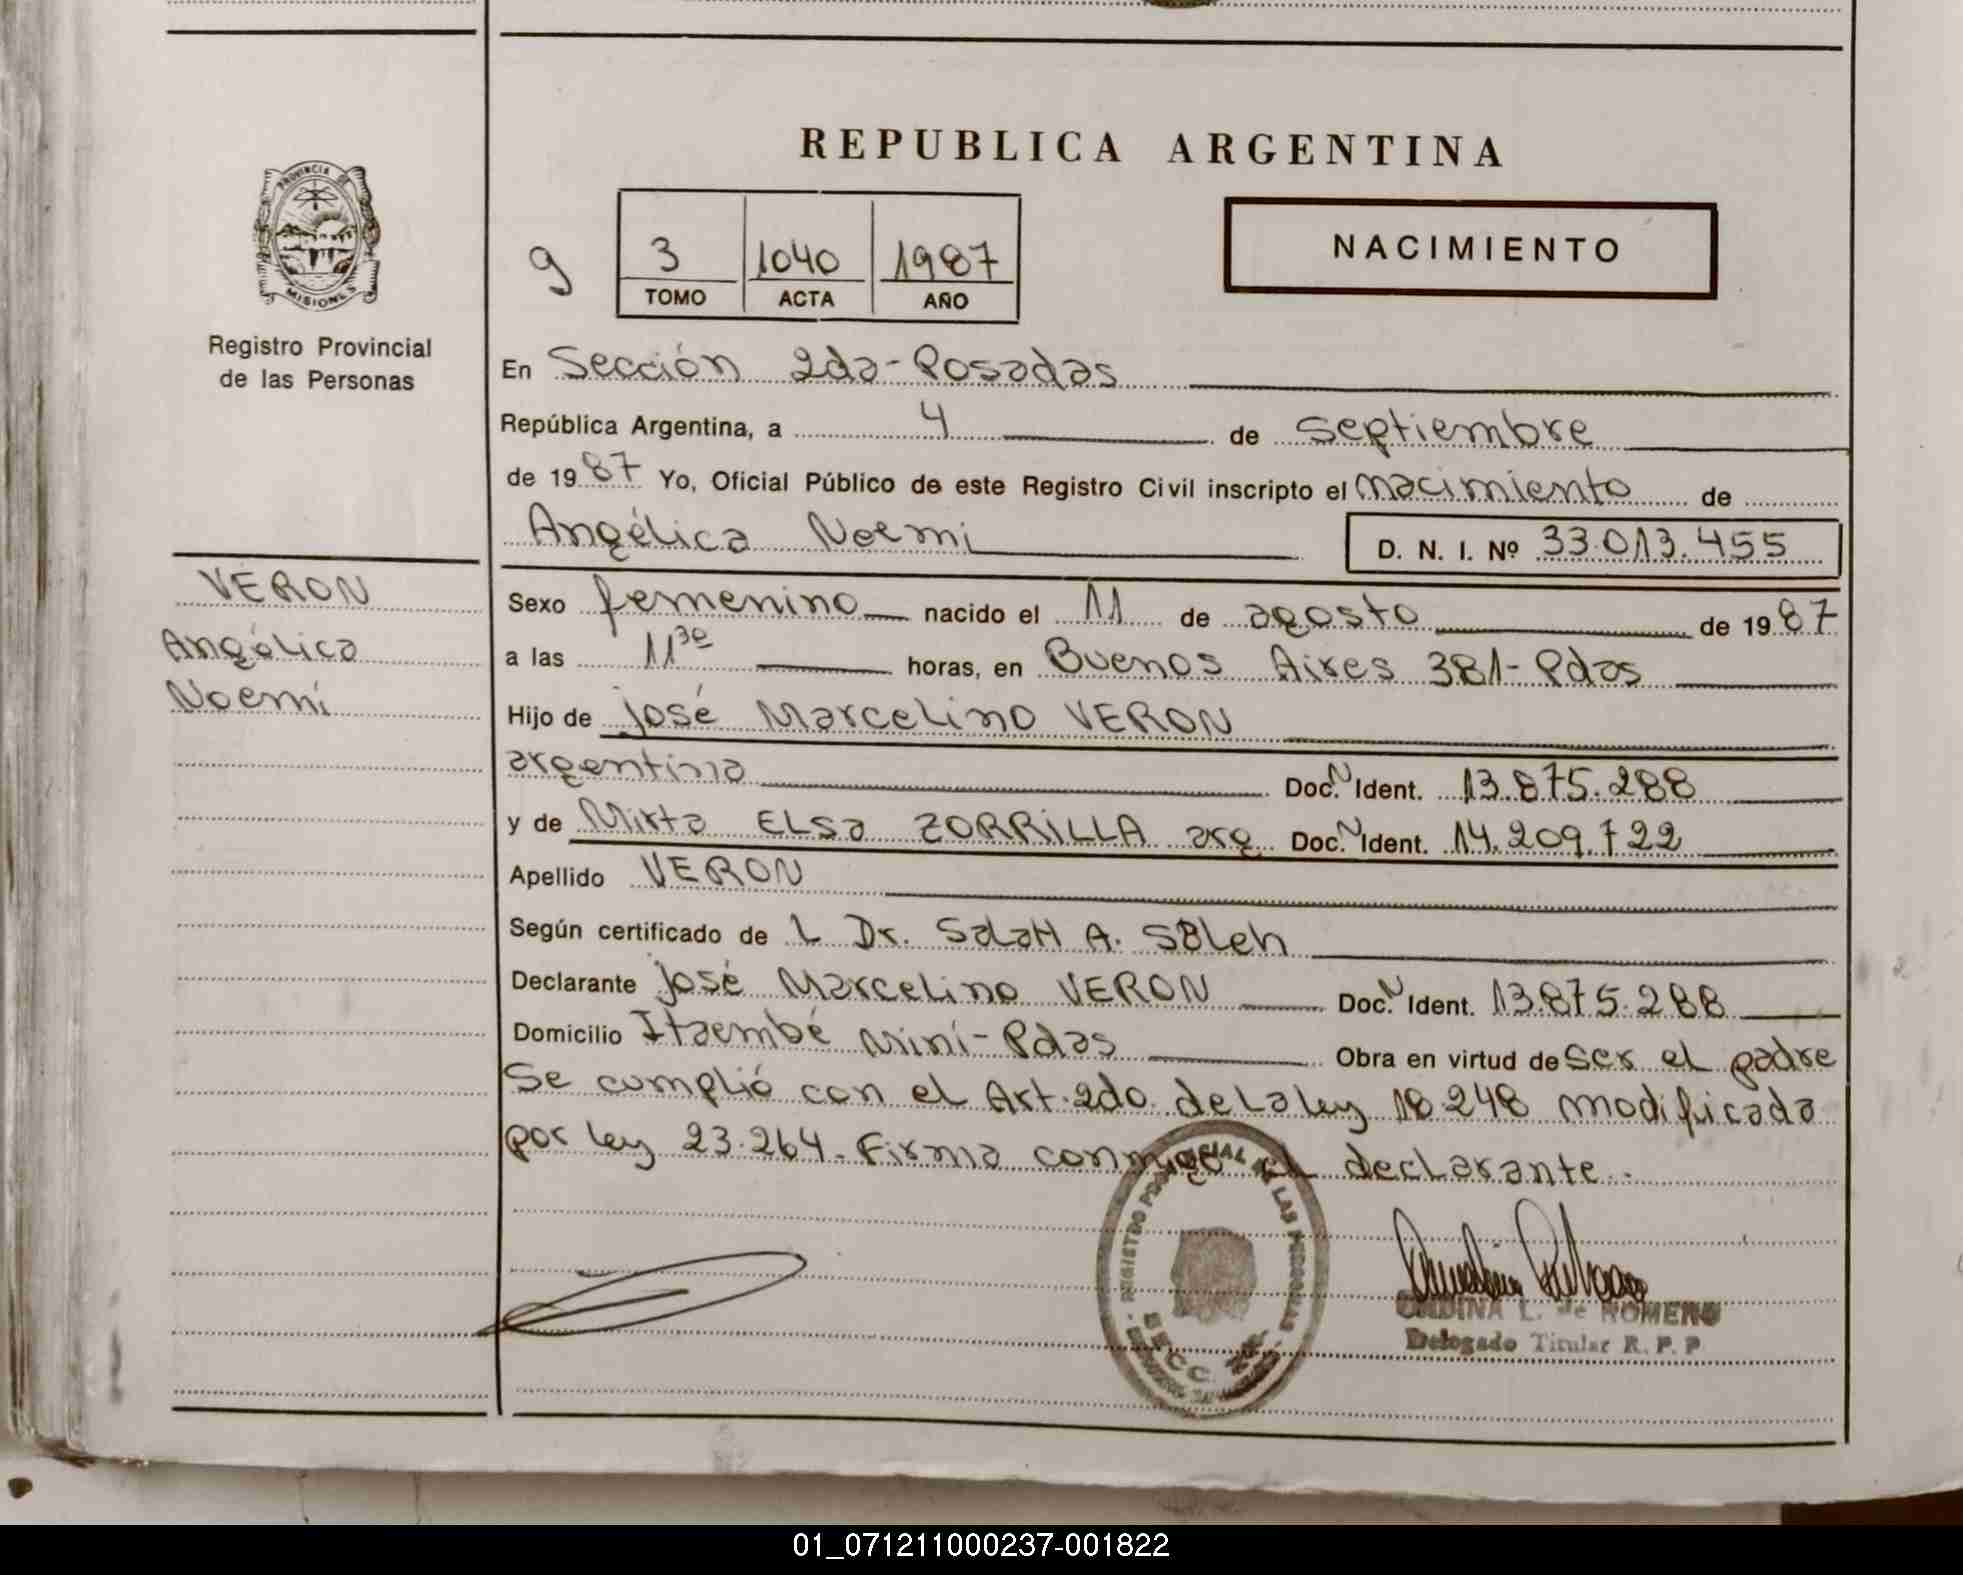 REPUBLICA ARGENTINA
PROVINCIA DE
MISIONES
Registro Provincial
de las Personas
9
3 1040 1987
TOMO ACTA AÑO
NACIMIENTO
En Sección 2da-Posadas
República Argentina, a 4 de septiembre
de 1987 Yo, Oficial Público de este Registro Civil inscripto el nacimiento de
Angélica Noemi
D. N. I. Nº 33.013.455
VERON
Angélica
Noemi
Sexo femenino nacido el 11 de agosto de 1987
a las 11³⁰ horas, en Buenos Aires 381-Pdas
Hijo de José Marcelino VERON
argentina Doc. N Ident. 13.875.288
y de Mirta ELSa ZORRILLA arg Doc. N Ident. 14.209.722
Apellido VERON
Según certificado de L Dr. SalaH A. Saleh
Declarante José Marcelino VERON Doc. N Ident. 13.875.288
Domicilio Itaembé Mini-Pdas Obra en virtud de ser el padre
Se cumplió con el Art. 2do. de La ley 18.248 modificada
por ley 23.264. Firma conmigo el declarante.
REGISTRO PROVINCIAL DE LAS PERSONAS
SECC.
L. de ROMERO
Delegado Titular R. P. P.
01_071211000237-001822